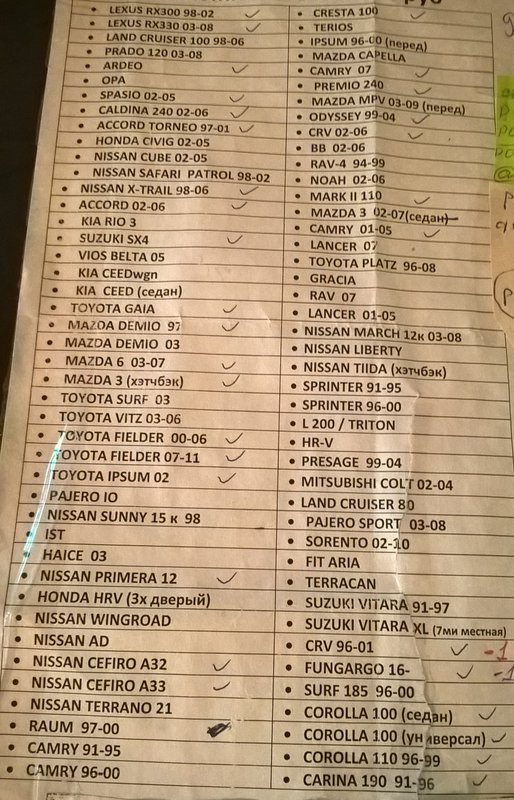 LEXUS RX300 98-02
LEXUS RX330 03-08
LAND CRUISER 100 98-06
PRADO 120 03-08
ARDEO
OPA
SPASIO 02-05
CALDINA 240 02-06
ACCORD TORNEO 97-01
HONDA CIVIG 02-05
NISSAN CUBE 02-05
NISSAN SAFARI PATROL 98-02
NISSAN X-TRAIL 98-06
ACCORD 02-06
KIA RIO 3
SUZUKI SX4
VIOS BELTA 05
KIA CEEDwgn
KIA CEED (седан)
TOYOTA GAIA
MAZDA DEMIO 97
MAZDA DEMIO 03
MAZDA 6 03-07
MAZDA 3 (хэтчбэк)
TOYOTA SURF 03
TOYOTA VITZ 03-06
TOYOTA FIELDER 00-06
TOYOTA FIELDER 07-11
TOYOTA IPSUM 02
PAJERO IO
NISSAN SUNNY 15 к 98
IST
HAICE 03
NISSAN PRIMERA 12
HONDA HRV (3х дверый)
NISSAN WINGROAD
NISSAN AD
NISSAN CEFIRO A32
NISSAN CEFIRO A33
NISSAN TERRANO 21
RAUM 97-00
CAMRY 91-95
CAMRY 96-00
CRESTA 100
TERIOS
IPSUM 96-00 (перед)
MAZDA CAPELLA
CAMRY 07
PREMIO 240
MAZDA MPV 03-09 (перед)
ODYSSEY 99-04
CRV 02-06
BB 02-06
RAV-4 94-99
NOAH 02-06
MARK II 110
MAZDA 3 02-07(седан)
CAMRY 01-05
LANCER 07
TOYOTA PLATZ 96-08
GRACIA
RAV 07
LANCER 01-05
NISSAN MARCH 12к 03-08
NISSAN LIBERTY
NISSAN TIIDA (хэтчбэк)
SPRINTER 91-95
SPRINTER 96-00
L 200 / TRITON
HR-V
PRESAGE 99-04
MITSUBISHI COLT 02-04
LAND CRUISER 80
PAJERO SPORT 03-08
SORENTO 02-10
FIT ARIA
TERRACAN
SUZUKI VITARA 91-97
SUZUKI VITARA XL (7ми местная)
CRV 96-01 -1
FUNGARGO 16- -1
SURF 185 96-00
COROLLA 100 (седан)
COROLLA 100 (универсал)
COROLLA 110 96-99
CARINA 190 91-96